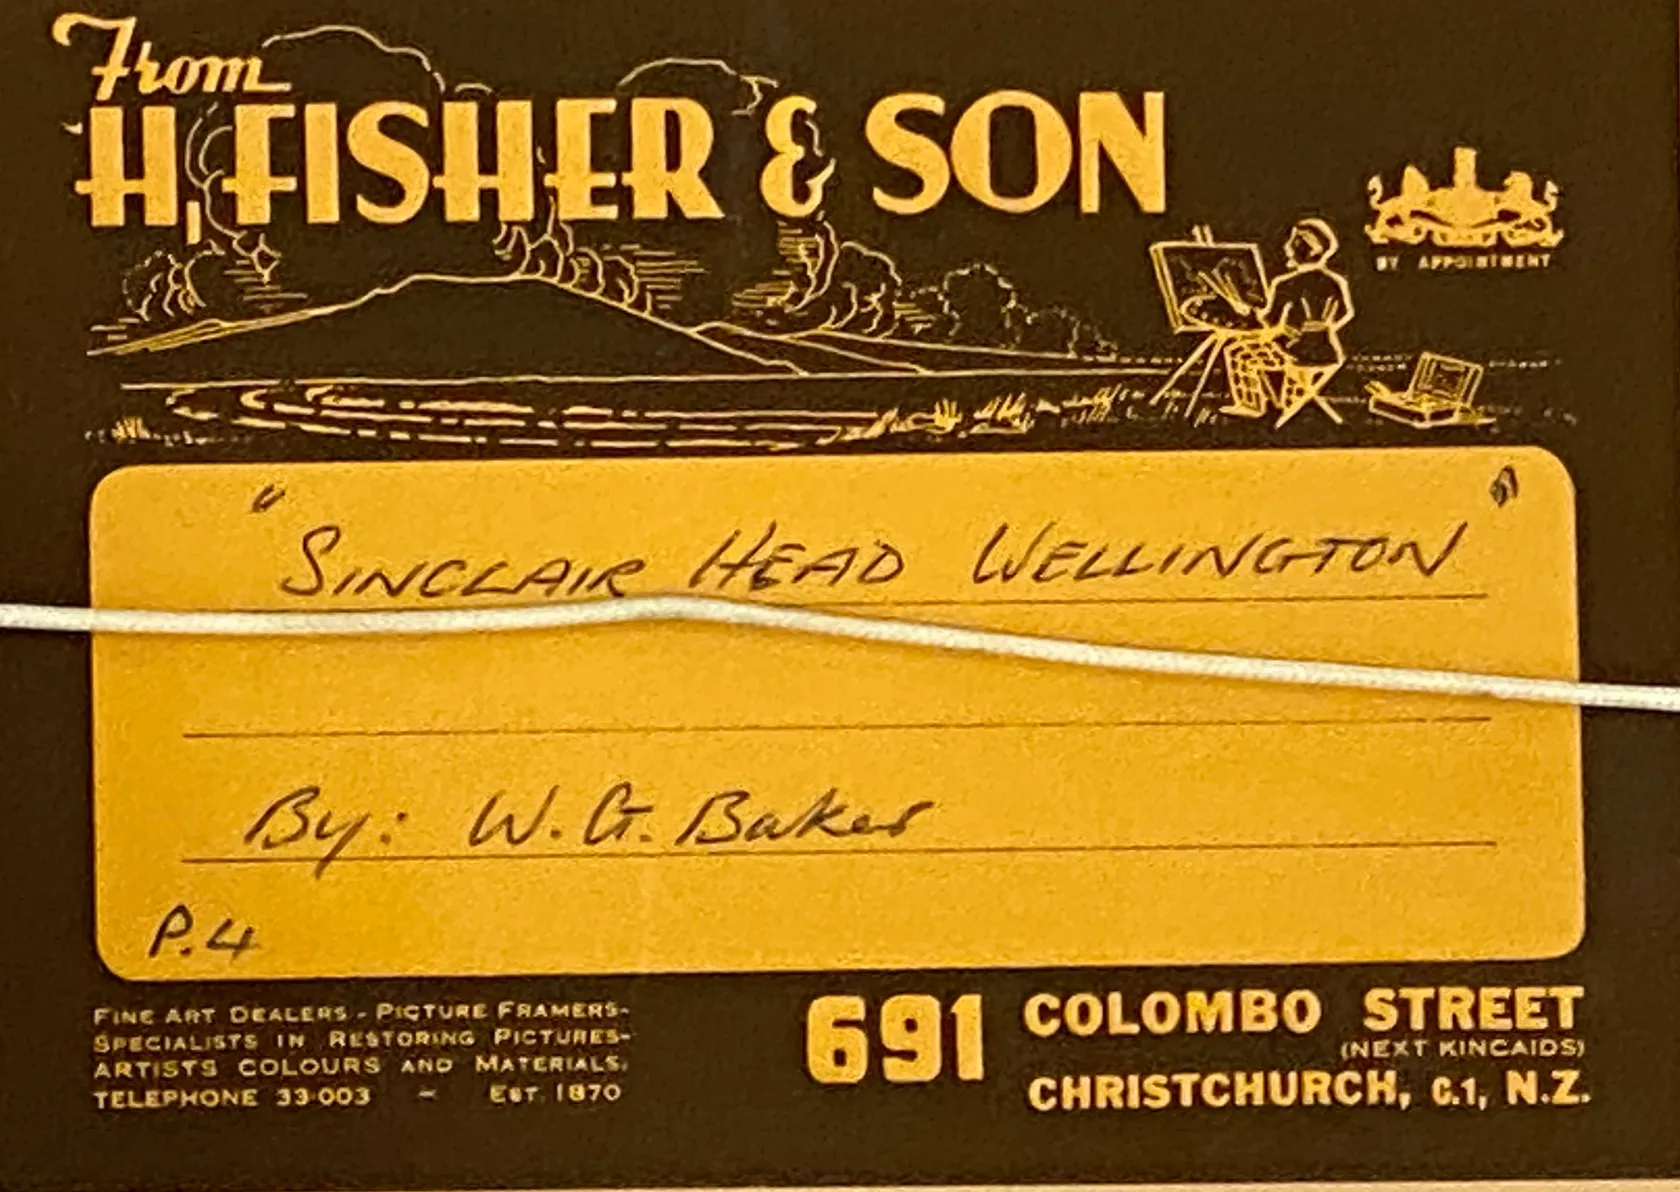 From
H. FISHER & SON
BY APPOINTMENT
"SINCLAIR HEAD WELLINGTON"
By: W. G. Baker
P.4
FINE ART DEALERS - PICTURE FRAMERS-
SPECIALISTS IN RESTORING PICTURES-
ARTISTS COLOURS AND MATERIALS.
TELEPHONE 33-003 - EST. 1870
691 COLOMBO STREET
(NEXT KINCAIDS)
CHRISTCHURCH, C.1, N.Z.